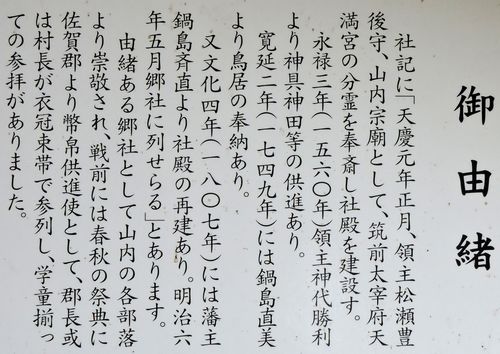 御由緒
社記に「天慶元年正月、領主松瀬豊
後守、山内宗廟として、筑前太宰府天
満宮の分霊を奉斎し社殿を建設す。
永禄三年(一五六〇年)領主神代勝利
より神具神田等の供進あり。
寛延二年(一七四九年)には鍋島直美
より鳥居の奉納あり。
又文化四年(一八〇七年)には藩主
鍋島斉直より社殿の再建あり。明治六
年五月郷社に列せらる」とあります。
由緒ある郷社として山内の各部落
より崇敬され、戦前には春秋の祭典に
佐賀郡より幣帛供進使として、郡長或
は村長が衣冠束帯で参列し、学童揃っ
ての参拝がありました。